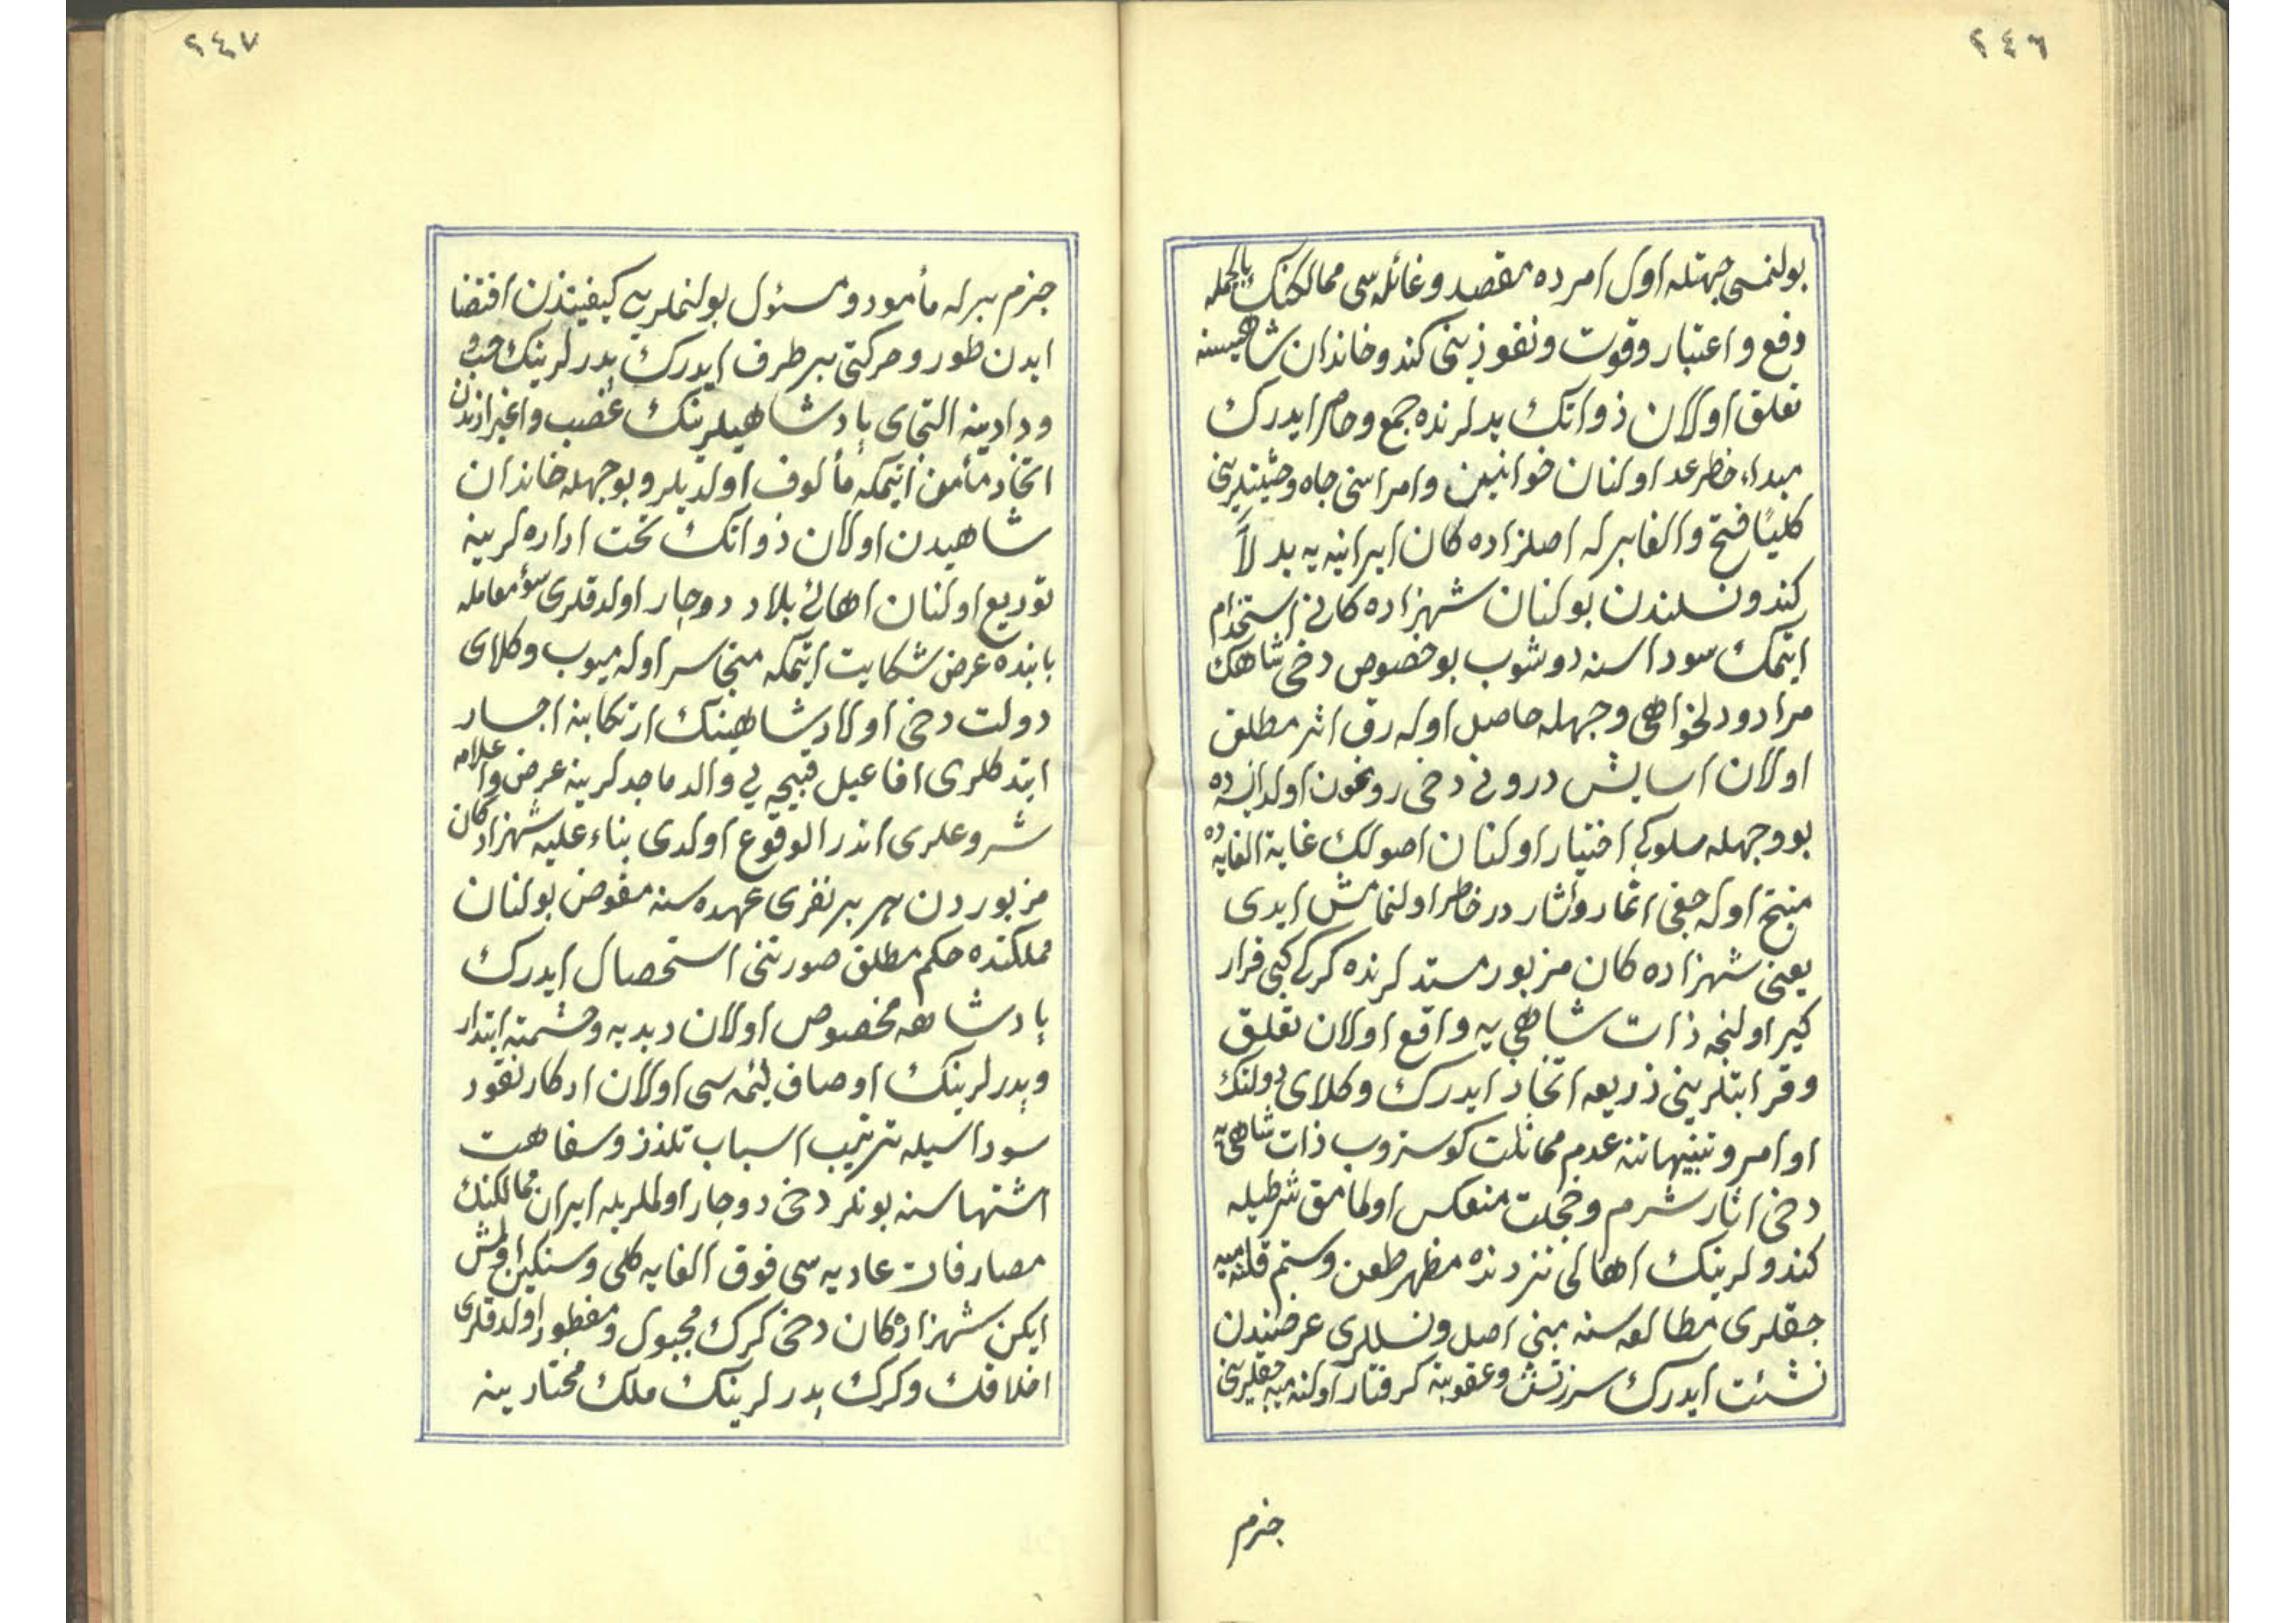 ٢٤٦
بولنمسی جهتله اول امرده مقصد وغائله سی ممالكنك بالجمله
دفع واعتبار وقوت ونفوذینی كندو خاندان شاهیسنه
تعلق اولان ذواتك یدلرنده جمع وحصر ایدرك
مبداء خطر عد اولنان خوانین وامراسنی جاه وحیثیتلرینی
كلیاً فتح والغا برله اصلزاده كان ایرانیه یه بدلاً
كندو نسلندن بولنان شهزاده كانی استخدام
ایتمك سوداسنه دوشوب بو خصوص دخی شاهك
مراد ودلخواهی وجهله حاصل اوله رق اثر مطلق
اولان اسایش درونی دخی رونمون اولدایسه ده
بو وجهله سلوكی اختیار اولنان اصولك غایة الغایه ده
منتج اوله جغی اثمار واثار در خاطر اولنمامش ایدی
یعنی شهزاده كان مزبور مسندلرنده كركی كبی قرار
كیر اولنجه ذات شاهی یه واقع اولان تعلق
وقرابتلرینی ذریعه اتخاذ ایدرك وكلای دولتك
اوامر وتنبیهاتنه عدم مماثلت كوستروب ذات شاهی یه
دخی اثار شرم وخجلت منعكس اولمامق شرطیله
كندولرینك اهالی نزدنده مظهر طعن وستم قلنه میه
جقلری مطالعه سنه مبنی اصل ونسللری عرضندن
نشئت ایدرك سرزنش وعقوبته كرفتار اولنه میه جقلرینی
جزم
٢٤٧
جزم برله مأمور ومسئول بولنملریی كیفیتندن اقتضا
ایدن طور وحركتی بر طرف ایدرك پدرلرینك حب و
ودادینه التجای پادشاهیلرینك غضب واغبرارندن
اتخاذ مأمن ایتمكه مألوف اولدیلر وبوجهله خاندان
شاهیدن اولان ذواتك تحت اداره لرینه
تودیع اولنان اهالئ بلاد دوچار اولدقلری سؤ معامله
بابنده عرض شكایت ایتمكه متجاسر اوله میوب وكلای
دولت دخی اولاد شاهینك ارتكابنه اجسار
ایتدكلری افاعیل قبیحه یی والد ماجدلرینه عرض واعلامه
شروعلری اندر الوقوع اولدی بناء علیه شهزادكان
مزبوردن هر بر نفری عهده سنه مفوض بولنان
مملكتده حكم مطلق صورتنی استحصال ایدرك
پادشاهه مخصوص اولان دبدبه وحشمته ابتدار
وپدرلرینك اوصاف لئمه سی اولان ادكار نقود
سوداسیله ترتیب اسباب تلذذ وسفاهت
اشتهاسنه بونلر دخی دوچار اولملریله ایران ممالكنك
مصارفات عادیه سی فوق الغایه كلی وسنكین اولمش
ایكن شهزاده كان دخی كرك مجبول ومفطور اولدقلری
اخلاقك وكرك پدرلرینك ملك مختارینه